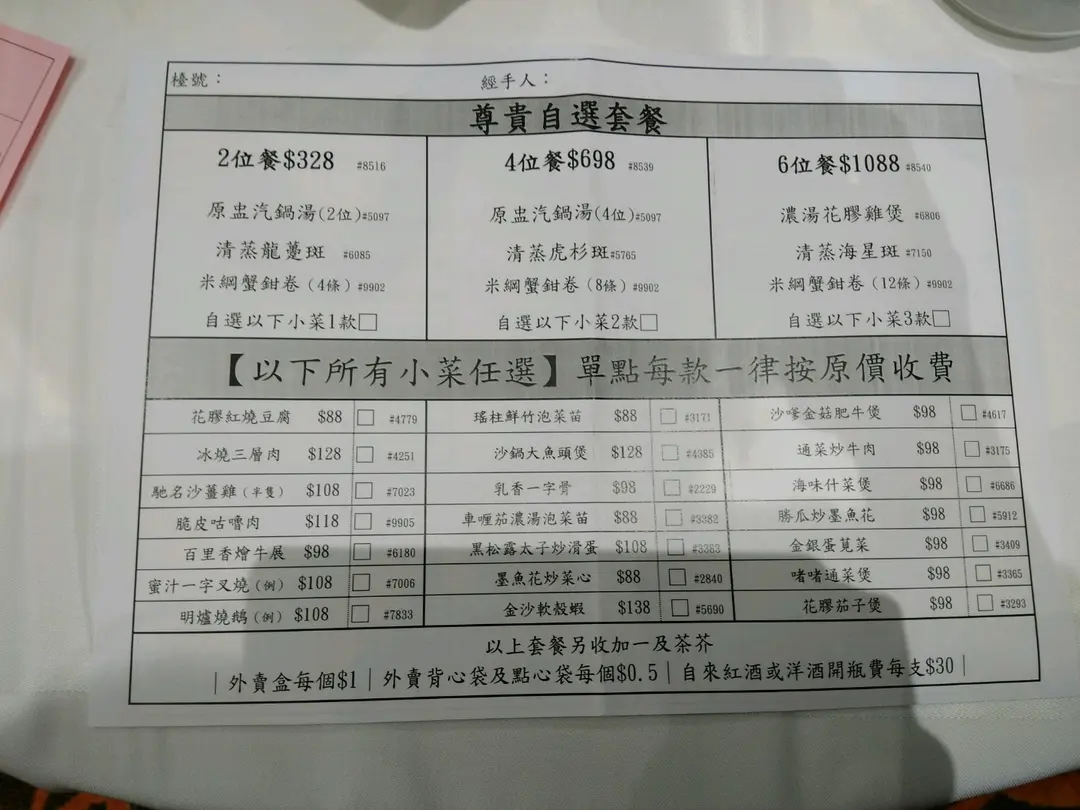 檯號： 經手人：
尊貴自選套餐
2位餐$328 #8516
原盅汽鍋湯(2位)#5097
清蒸龍躉斑 #6085
米網蟹鉗卷（4條）#9902
自選以下小菜1款□
4位餐$698 #8539
原盅汽鍋湯(4位)#5097
清蒸虎杉斑#5765
米網蟹鉗卷（8條）#9902
自選以下小菜2款□
6位餐$1088 #8540
濃湯花膠雞煲 #6806
清蒸海星斑 #7150
米網蟹鉗卷（12條）#9902
自選以下小菜3款□
【以下所有小菜任選】單點每款一律按原價收費
花膠紅燒豆腐 $88 □ #4779
冰燒三層肉 $128 □ #4251
馳名沙薑雞（半隻） $108 □ #7023
脆皮咕嚕肉 $118 □ #9905
百里香燴牛展 $98 □ #6180
蜜汁一字叉燒（例） $108 □ #7006
明爐燒鵝（例） $108 □ #7833
瑤柱鮮竹泡菜苗 $88 □ #3171
沙鍋大魚頭煲 $128 □ #4385
乳香一字骨 $98 □ #2229
車喱茄濃湯泡菜苗 $88 □ #3382
黑松露太子炒滑蛋 $108 □ #3363
墨魚花炒菜心 $88 □ #2840
金沙軟殼蝦 $138 □ #5690
沙嗲金菇肥牛煲 $98 □ #4617
通菜炒牛肉 $98 □ #3175
海味什菜煲 $98 □ #6686
勝瓜炒墨魚花 $98 □ #5912
金銀蛋莧菜 $98 □ #3409
啫啫通菜煲 $98 □ #3365
花膠茄子煲 $98 □ #3293
以上套餐另收加一及茶芥
｜外賣盒每個$1｜外賣背心袋及點心袋每個$0.5｜自來紅酒或洋酒開瓶費每支$30｜